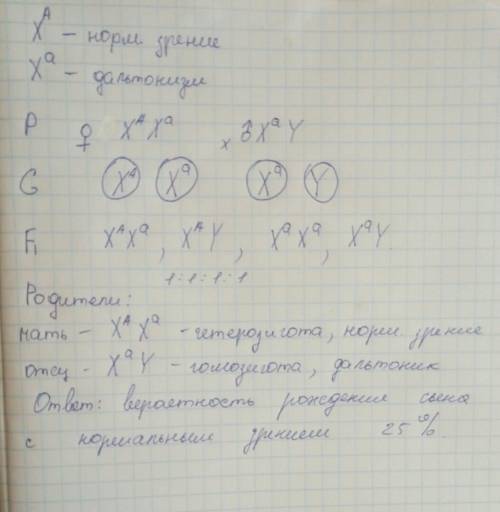 X^A – норм. зрение
X^a – дальтонизм
P ♀ X^A X^a x ♂ X^a Y
G X^A X^a X^a Y
F1 X^A X^a, X^A Y, X^a X^a, X^a Y.
1:1:1:1
Родители:
мать – X^A X^a – гетерозигота, норм. зрение
отец – X^a Y – гомозигота, дальтоник
Ответ: вероятность рождения сына
с нормальным зрением 25%.